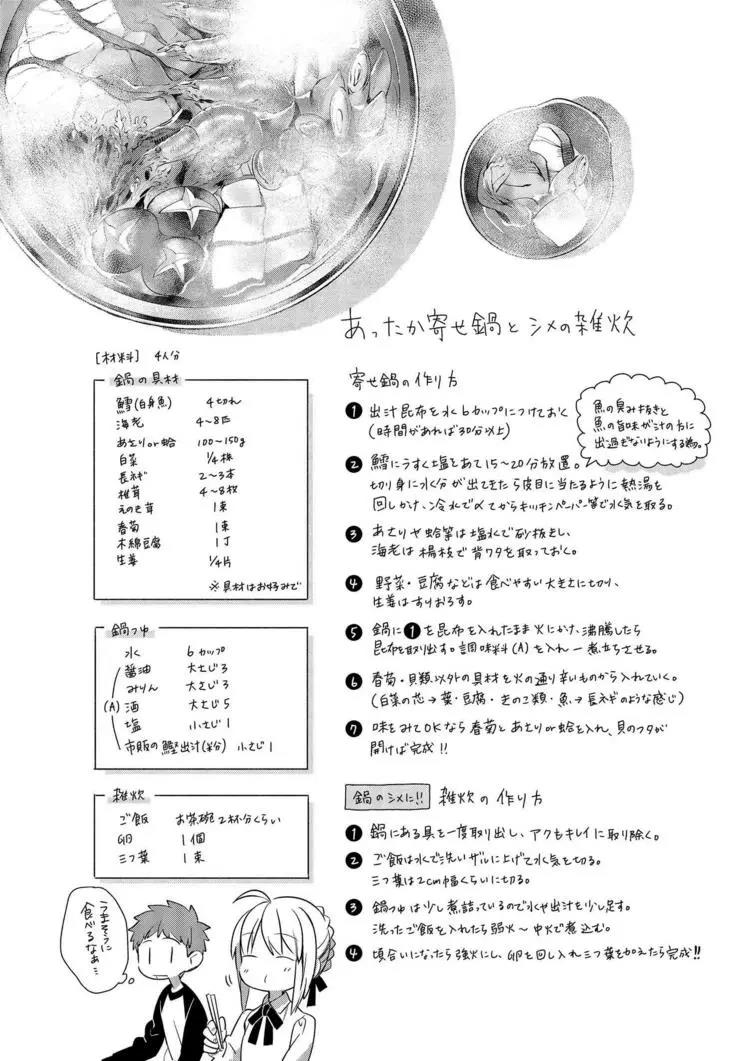 あったか寄せ鍋とシメの雑炊
[材料] 4人分
鍋の具材
鱈(白身魚) 4切れ
海老 4〜8匹
あさりor蛤 100〜150g
白菜 1/4株
長ネギ 2〜3本
椎茸 4〜8枚
えのき茸 1束
春菊 1束
木綿豆腐 1丁
生姜 1/4片
※具材はお好みで
鍋つゆ
水 6カップ
醤油 大さじ3
みりん 大さじ3
(A) 酒 大さじ5
塩 小さじ1
市販の鰹出汁(粉) 小さじ1
雑炊
ご飯 お茶碗2杯分くらい
卵 1個
三つ葉 1束
寄せ鍋の作り方
❶ 出汁昆布を水6カップにつけておく
(時間があれば30分以上)
魚の臭み抜きと
魚の旨味が汁の方に
出過ぎないようにする為。
❷ 鱈にうすく塩をあて15〜20分放置。
切り身に水分が出てきたら皮目に当たるように熱湯を
回しかけ、冷水で〆てからキッチンペーパー等で水気を取る。
❸ あさりや蛤等は塩水で砂抜きし、
海老は楊枝で背ワタを取っておく。
❹ 野菜・豆腐などは食べやすい大きさに切り、
生姜はすりおろす。
❺ 鍋に❶を昆布を入れたまま火にかけ、沸騰したら
昆布を取り出す。調味料(A)を入れ一煮立ちさせる。
❻ 春菊・貝類以外の具材を火の通り辛いものから入れていく。
(白菜の芯→葉・豆腐・きのこ類・魚→長ネギのような感じ)
❼ 味をみてOKなら春菊とあさりor蛤を入れ、貝のフタが
開けば完成!!
鍋のシメに!! 雑炊の作り方
❶ 鍋にある具を一度取り出し、アクもキレイに取り除く。
❷ ご飯は水で洗いザルに上げて水気を切る。
三つ葉は2cm幅くらいに切る。
❸ 鍋つゆは少し煮詰っているので水や出汁を少し足す。
洗ったご飯を入れたら弱火〜中火で煮込む。
❹ 頃合いになったら強火にし、卵を回し入れ三つ葉を加えたら完成!!
うまそうに
食べるなぁ…